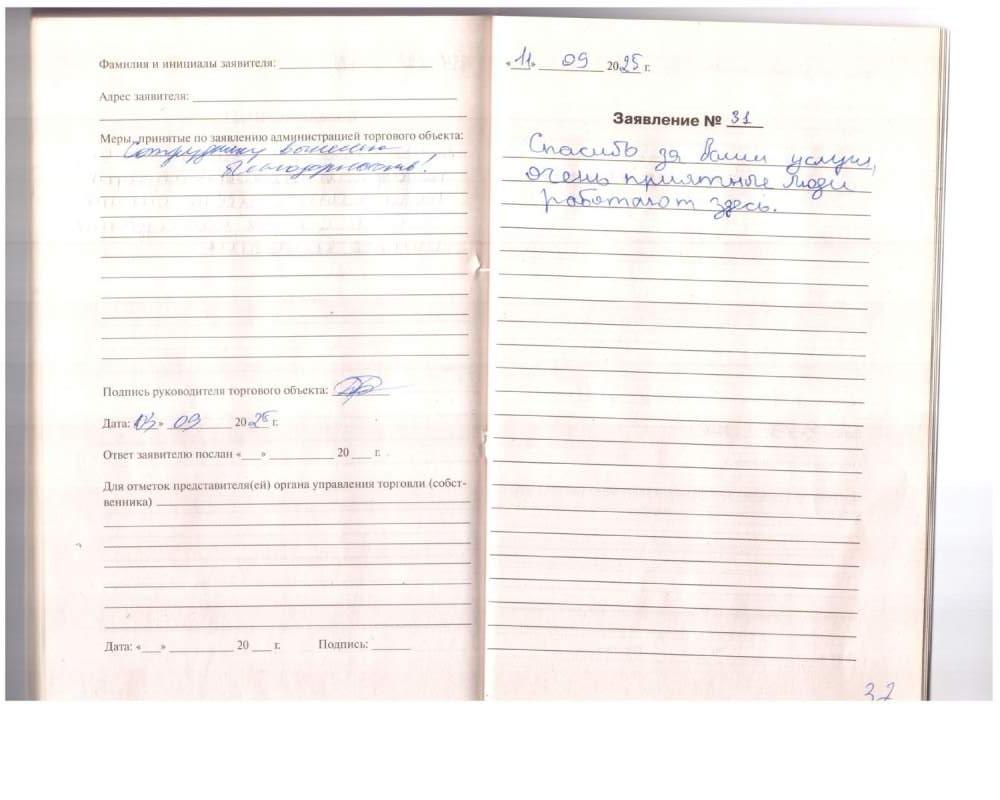 Фамилия и инициалы заявителя:
Адрес заявителя:
Меры, принятые по заявлению администрацией торгового объекта:
Сотруднику вынесена
благодарность!
Подпись руководителя торгового объекта:
Дата: «03» 09 2025 г.
Ответ заявителю послан «___» ______ 20 ___ г.
Для отметок представителя(ей) органа управления торговли (собст-
венника)
Дата: «___» ______ 20 ___ г. Подпись:
«11» 09 2025 г.
Заявление № 31
Спасибо за ваши услуги,
очень приятные люди
работают здесь.
32